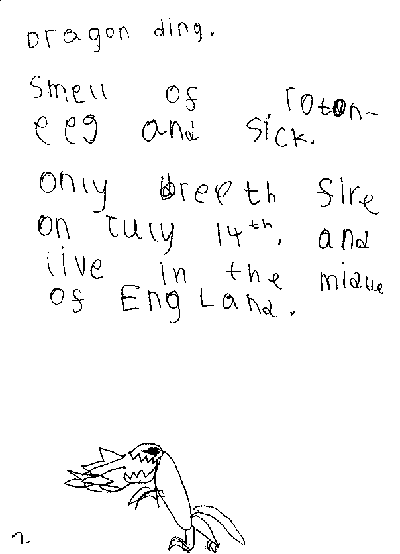 Dragon ding.
Smell of roton-
eeg and sick.
only breeth fire
on July 14th, and
live in the midue
of EngLand.